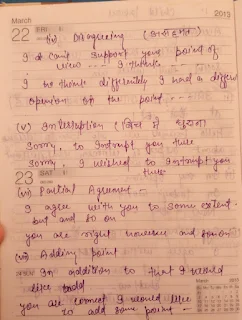 March 2013
22 FRI
(iv) Disagreeing (असहमत)
I can't support your point of
view --- I think ---
I think differently I had a differ
opinion on the point ---
(v) Interruption (बीच में
Sorry, to Intrupt you here
23 SAT
Sorry, I wished to Intrupt you
here
(vi) Partial Agreement -
I agree with you to some extent.
but and so on
you are right however and so on
(vii) Adding point
In addition to that I would
like to add
you are correct I would like
to add some point -
March 2013